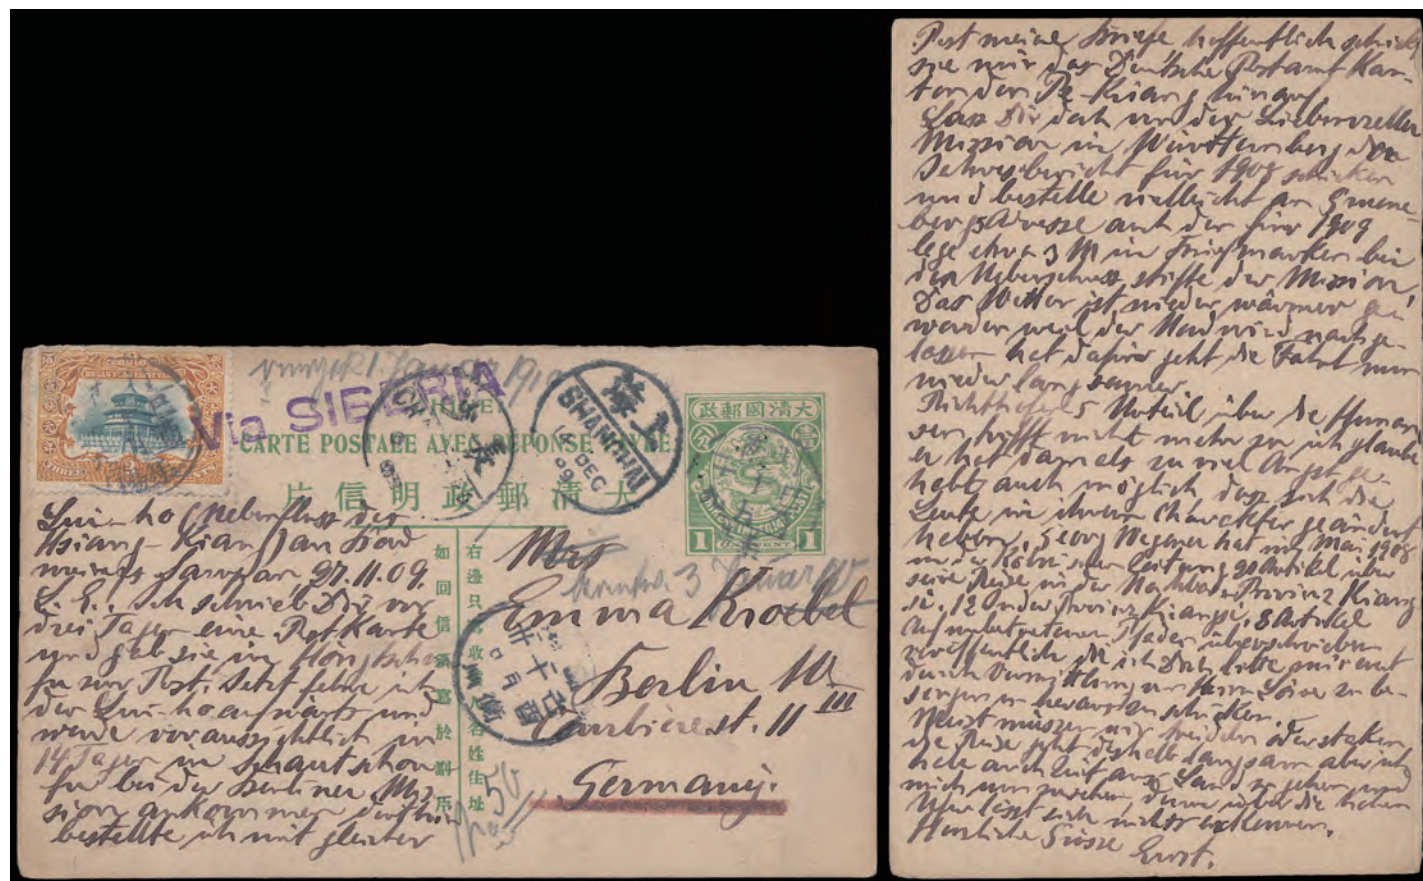 Via SIBERIA
CARTE POSTALE AVEC RÉPONSE PAYÉE
大清郵政明信片
大清國郵政
壹分
1
1
上海
SHANGHAI
DEC
09
長沙
右邊只寫收人名姓住址
如回信須寫於副片
1. Januar 1910
3 Januar
50
Lui-ho (Nebenfluss des
Hsiang-Kiang) an Bord
meines Sampan, 27.11.09.
L. E., Ich schrieb Dir vor
drei Tagen eine Postkarte
und gab sie in
fu zur Post. Jetzt fahre ich
den Lui-ho aufwärts und
werde voraussichtlich in
14 Tagen in Schautschou
fu bei der Berliner Mis-
sion ankommen dorthin
bestellte ich mit gleicher
Mrs
Emma Kroebel
Berlin W
III
Courbièrest. 11
Germany.
Post meine Briefe, hoffentlich schickt
sie mir das Deutsche Postamt Kan-
ton den Pe-Kiang hinauf.
Lass Dir doch von der Liebenzeller
Mission in Württemberg den
Jahresbericht für 1908 schicken
und bestelle vielleicht an Greene-
bergs Adresse auch den für 1909
lege etwa 3 M in Briefmarken bei
den Ueberschuss stifte der Mission.
Das Wetter ist wieder wärmer ge-
worden weil der Nordwind nachge-
lassen hat dafür geht die Fahrt nun
wieder langsamer.
Richthofens Urteil über die Hunan-
sen trifft nicht mehr zu ich glaube
er hat damals zu viel Angst ge-
habt auch möglich dass sich die
Leute in ihrem Charakter geändert
haben. Georg Wegener hat im Mai 1908
in der Kölnischen Zeitung 20 Artikel über
seine Reise in der Nachbar-Provinz Kiang
si. 12 In der Provinz Kiangsi, 8 Artikel
Auf unbetretenen Pfaden überschrieben
veröffentlicht die ich Dich bitte mir
durch Vermittlung von Herrn zu be-
sorgen u. herauszuschicken.
Meist müssen wir treideln oder staken
die Reise geht deshalb langsam aber ich
habe auch Zeit ans Land zu gehen und
mich umzusehen, denn über die hohen
Ufer lässt sich nichts erkennen.
Herzliche Grüsse Ernst.